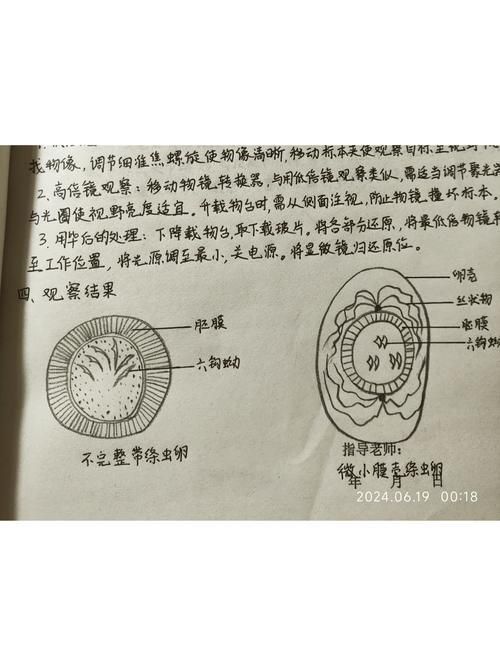 找物像，调节细准焦螺旋使物像清晰，移动标本夹使观察目标至视野中
2、高倍镜观察：移动物镜转换器，与用低倍镜观察类似，需适当调节聚光器
与光圈使视野亮度适宜。升载物台时，需从侧面注视，防止物镜撞坏标本。
3、用毕后的处理：下降载物台，取下载玻片。将各部分还原，将最低倍物镜转
至工作位置，将光源调至最小，关电源。将显微镜归还原位。
四、观察结果
卵壳
丝状物
胚膜
六钩蚴
胚膜
六钩蚴
不完整带绦虫卵
指导老师：
微小膜壳绦虫卵
年 月 日
2024.06.19 00:18